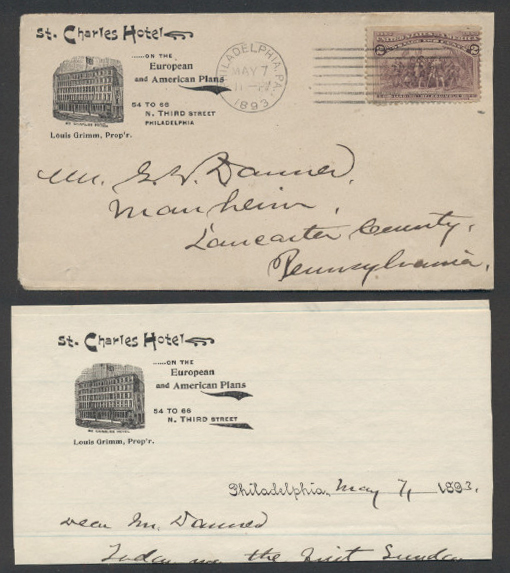 St. Charles Hotel
......ON THE
European
and American Plans
54 TO 66
N. THIRD STREET
PHILADELPHIA
ST. CHARLES HOTEL
Louis Grimm, Prop'r.
PHILADELPHIA, PA.
MAY 7
1893
2 2
Mr. G. W. Danner,
Manheim,
Lancaster County,
Pennsylvania,
St. Charles Hotel
......ON THE
European
and American Plans
54 TO 66
N. THIRD STREET
ST. CHARLES HOTEL
Louis Grimm, Prop'r.
Philadelphia, May 7, 1893.
Dear Mr. Danner
Today the first Sunday